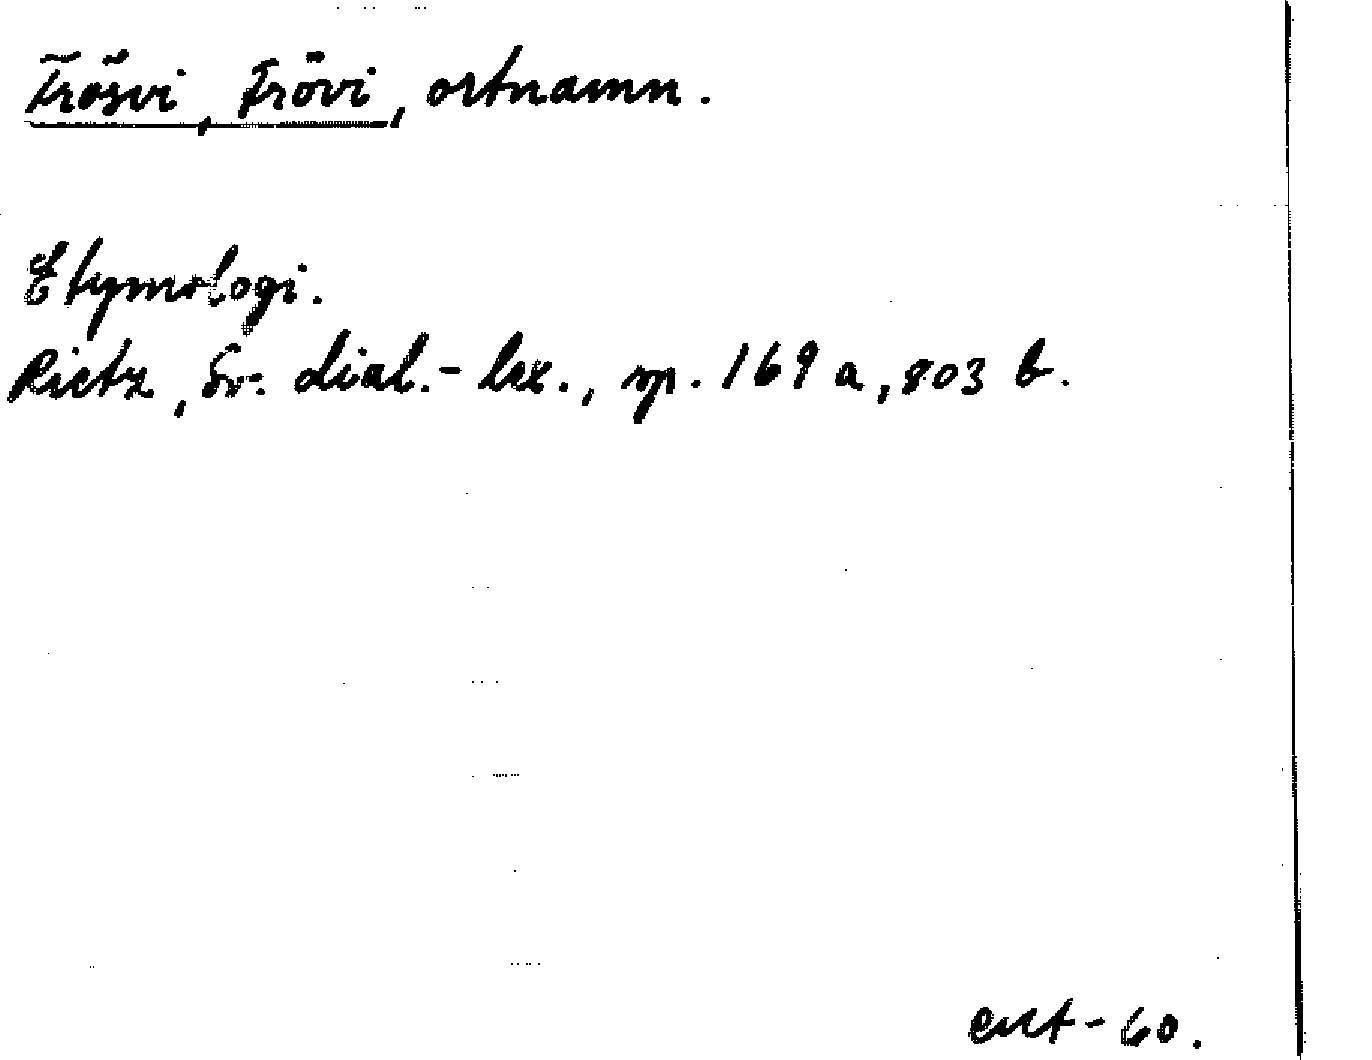 Frösvi, Frövi, ortnamn.
Etymologi.
Rietz, Sv. dial.-lex., sp. 169 a, 803 b.